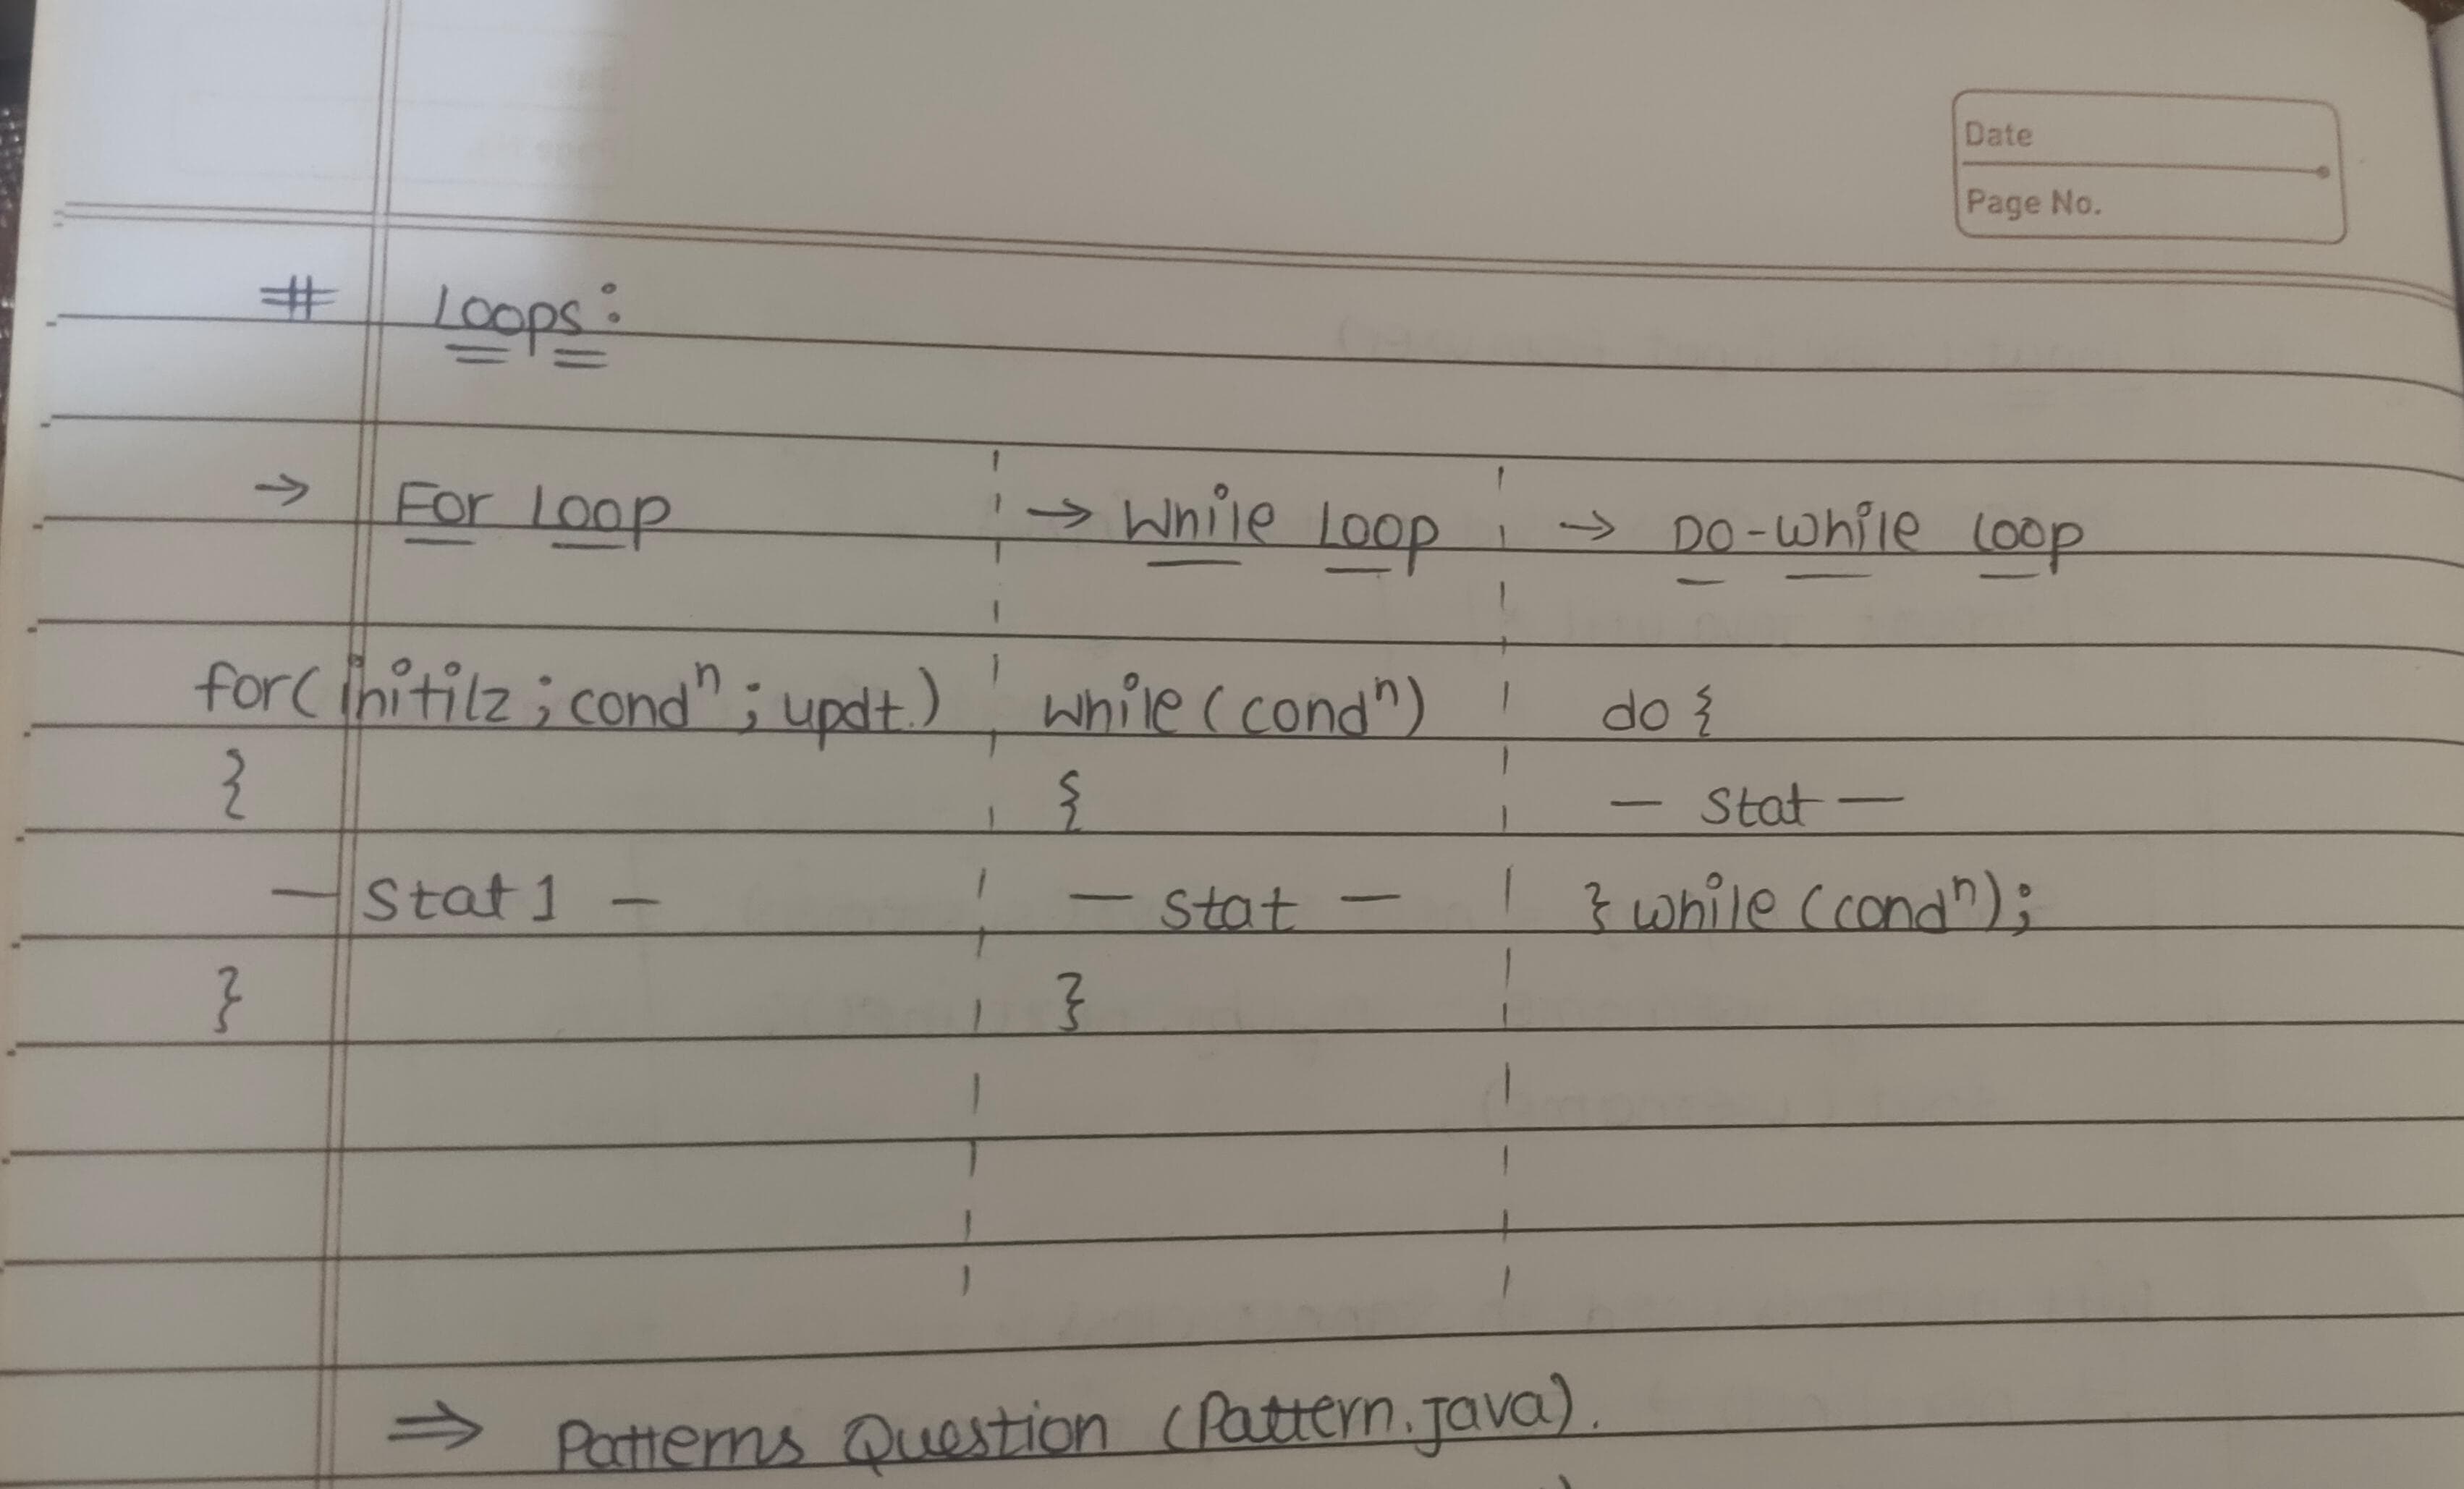 Date
Page No.
# Loops:
→ For Loop
for(initilz; condⁿ; updt.)
{
— Stat 1 —
}
→ While Loop
while (condⁿ)
{
— stat —
}
→ Do-while loop
do {
— Stat —
} while (condⁿ);
⇒ Patterns Question (Pattern.java).